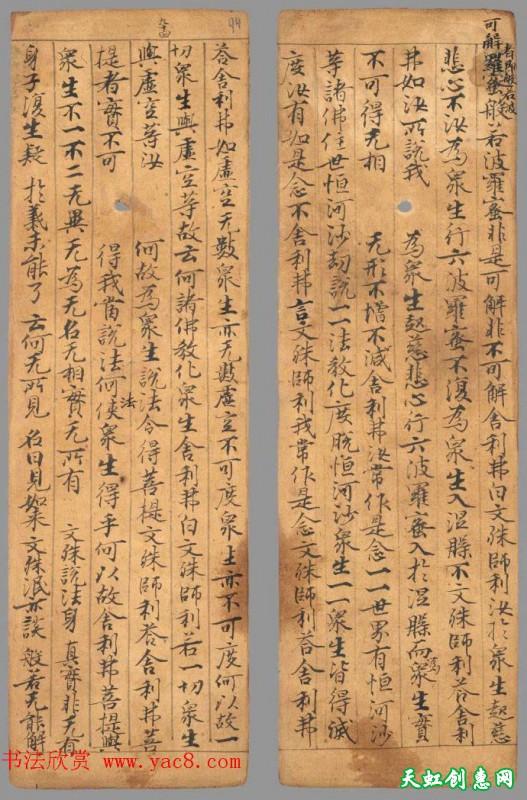 可解羅蜜般若波羅蜜非是可解非不可解舍利弗白文殊師利汝於衆生起慈
者即般若波
悲心不汝為衆生行六波羅蜜不復為衆生入涅槃不文殊師利荅舍利
弗如汝所說我 為衆生起慈悲心行六波羅蜜入於涅槃而衆生實
為
不可得无相 无形不增不減舍利弗汝常作是念一一世界有恒河沙
等諸佛住世恒河沙劫說一一法教化度脫恒河沙衆生一一衆生皆得滅
度汝有如是念不舍利弗言文殊師利我常作是念文殊師利荅舍利弗
九十四
荅舍利弗如虛空无數衆生亦无數虛空不可度衆生亦不可度何以故一
切衆生與虛空等故云何諸佛教化衆生舍利弗白文殊師利若一切衆生
與虛空等汝 何故為衆生說法令得菩提文殊師利荅舍利弗菩
提者實不可 得我當說法何使衆生得乎何以故舍利弗菩提與
法
衆生不一不二无異无為无名无相實无所有 文殊說法身 真實非无有
身子復生疑 於義未能了 云何无所見 名曰見如來 文殊泯亦談 般若无能解
书法欣赏
www.yac8.com
天虹创惠网